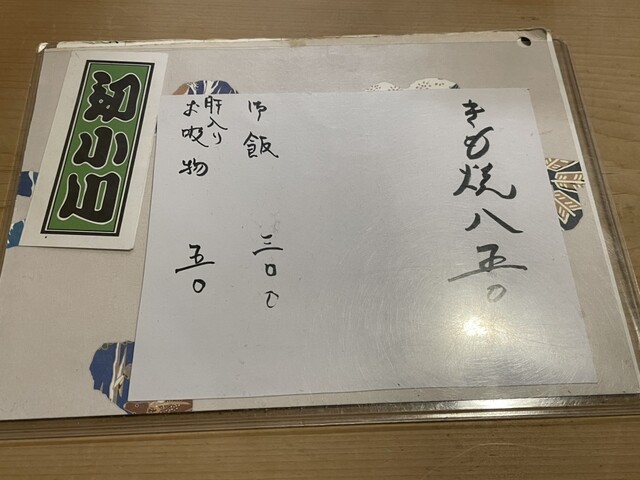 きも焼 八五〇
御飯 三〇〇
肝入り
お吸物 五〇
初小川